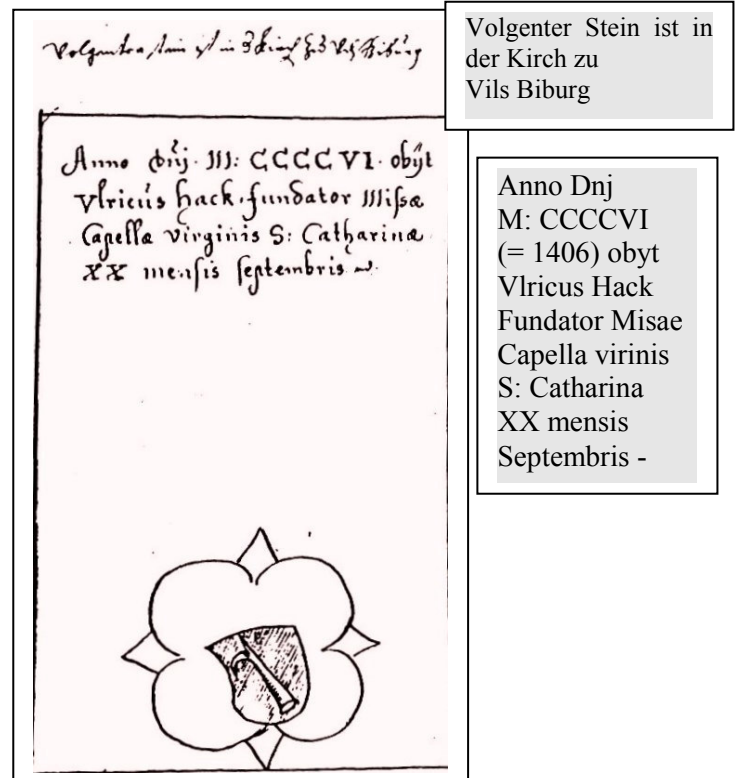 Volgenter stein ist in d Kirch zu Vils Biburg
Anno Dnj. M: CCCCVI. obÿt
Vlricus Hack, fundator Missæ
Capellæ virginis S: Catharinæ
XX mensis septembris
Volgenter Stein ist in
der Kirch zu
Vils Biburg
Anno Dnj
M: CCCCVI
(= 1406) obyt
Vlricus Hack
Fundator Misae
Capella virinis
S: Catharina
XX mensis
Septembris -